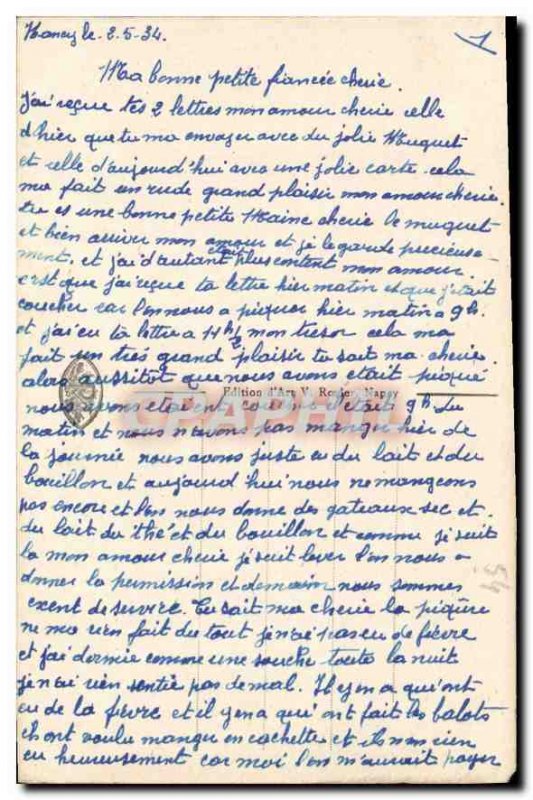 Nancy le. 2.5-34.
1
Ma bonne petite fiancée cherie.
J'ai reçue tes 2 lettres mon amour cherie celle
d'hier que tu ma envoyer avec du jolie Muguet
et celle d'aujourd'hui avec une jolie carte cela
ma fait un rude grand plaisir mon amour cherie.
tu es une bonne petite cherie le muguet
et bien arriver mon amour et je le garde precieuse-
ment, et j'ai d'autant plus content mon amour
c'est que j'ai reçue ta lettre hier matin et que j'etait
coucher car l'on nous a piquer hier matin a 9h.
et j'ai eu ta lettre a 4h½ mon tresor cela ma
fait un tres grand plaisir tu sait ma cherie.
alors aussitot que nous avons etait piqué
Edition d'Art V. Nancy
nous avons etaient coucher c'etait 9h du
matin et nous n'avons pas manger hier de
la journée nous avons juste eu du lait et du
bouillon et aujourd hui nous ne mangeons
pas encore et l'on nous donne des gateaux sec et
du lait du thé et du bouillon et comme je suit
la mon amour cherie je suit lever l'on nous a
donner la permission et demain nous sommes
exent de servire. Tu sait ma cherie la piqûre
ne ma rien fait du tout je n'ai pas eu de fievre
et j'ai dormie comme une souche toute la nuit
je n'ai rien sentie pas de mal. Il y en a qu'ont
eu de la fievre et il y en a qu'ont fait les balots
ils ont voulu manger en cachette et ils non rien
eu heureusement car moi l'on m'aurait payer